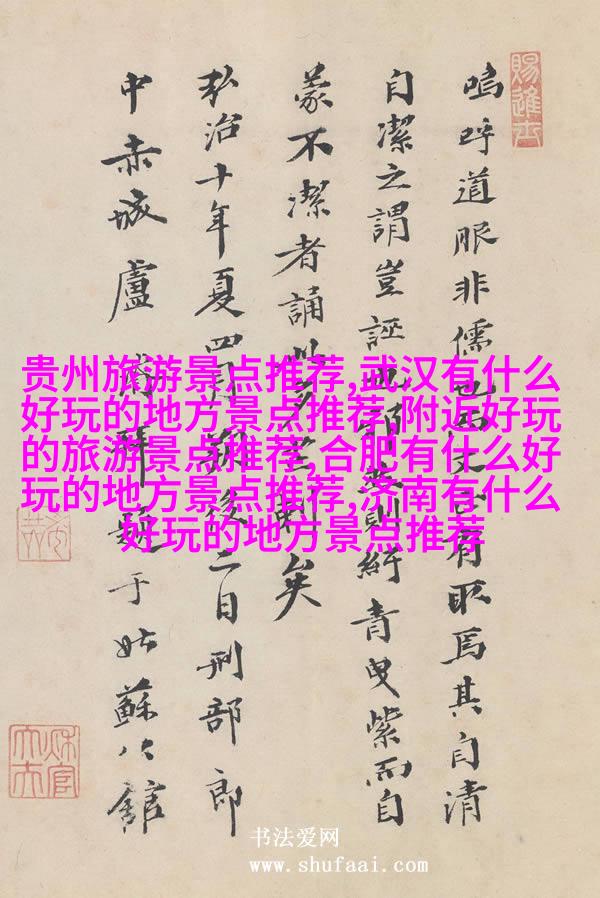 賜進士
嗚呼道眼非儒也有取焉其自清
自潔之謂豈誣則紆青曳紫而自
蒙不潔者誦此矣
弘治十年夏四月朔後二日刑部郎
中赤城盧拜題于姑蘇公館
贵州旅游景点推荐,武汉有什么
好玩的地方景点推荐,附近好玩
的旅游景点推荐,合肥有什么好
玩的地方景点推荐,济南有什么
好玩的地方景点推荐
书法爱网
www.shufaai.com